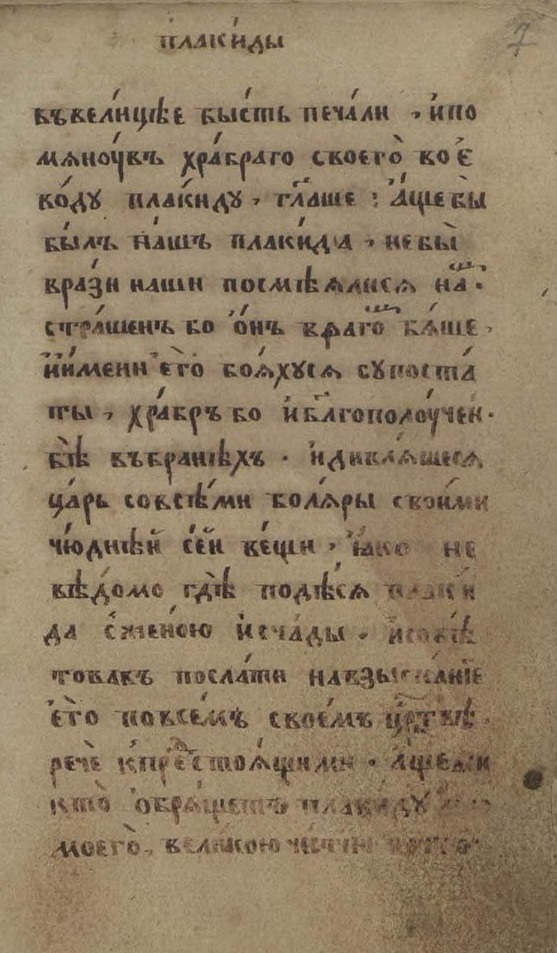 плаки́ды
7
въвели́цѣе бы́сть печа́ли , и҆по
мѧноу́въ хра́браго своего̀ во е҆
во́ду плаки́ду , гл҃аше : а҆ще бы̀
бы́лъ на́шъ плаки́да , не бы̀
врази́ наши посмѣѧ́лисѧ на́ⷨ .
стра́шенъ бо ѻ҆́нъ враго́ⷨ бѧ́ше ,
и҆и́мени е҆го̀ боѧ́хусѧ супоста́
ты , хра́бръ бо и҆ бл҃гополоу́чен
бѣ̀ въбране́хъ . и҆дивлѧ́шесѧ
ца́рь совсѣ́ми болѧ́ры свои́ми
чю́днѣй се́й ве́щи , ꙗ҆́ко не
вѣ́домо гдѣ̀ подѣ́сѧ плаки́
да с̾жено́ю и҆счады . и҆совѣ́
това въ посла́ти навзыска́нїе
е҆го̀ повсе́мъ свое́мъ црⷭ҇твѣ .
речѐ к̾предстоѧ́щимъ . а҆́ще
кто̀ ѻ҆брѧ́щетъ плаки́ду
моего̀ , вели́кою